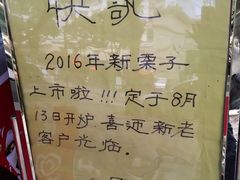 快讯
2016年新栗子
上市啦!!!定于8月
13日开炉喜迎新老
客户光临.